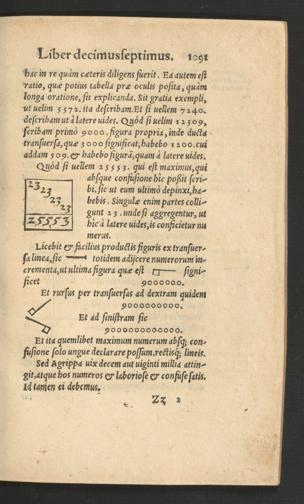 Liber decimusseptimus. 1091
hac in re quàm cæteris diligens fuerit. Ea autem est
ratio, quæ potius tabella præ oculis posita, quàm
longa oratione, sit explicanda. Sit gratia exempli,
ut uelim 5572. ita describam. Et si uellem 7240.
describam ut à latere uides. Quòd si uelim 12509,
scribam primò 9000. figura propria, inde ducta
transuersa, quæ 3000 significat, habebo 1200. cui
addam 509. & habebo figurā, quam à latere uides.
Quòd si uellem 25553. qui est maximus, qui
absque confusione hic possit scri-
bi. sic ut eum ultimò depinxi, ha-
bebis. Singulæ enim partes colli-
gunt 23. unde si aggregentur, ut
hic à latere uides, is conficietur nu
merus.
23
23
23
23
25553
Licebit & facilius productis figuris ex transuer-
sa linea, sic totidem adijcere numerorum in-
crementa, ut ultima figura quæ est signi-
ficet 9000000.
Et rursus per transuersas ad dextram quidem
90000000000.
Et ad sinistram sic
9000000000000.
Et ita quemlibet maximum numerum absq; con-
fusione solo ungue declarare possum, rectisq; lineis.
Sed Agrippa uix decem aut uiginti millia attin-
git, atque hos numeros & laboriose & confuse satis.
Id tamen ei debemus.
Zz 2